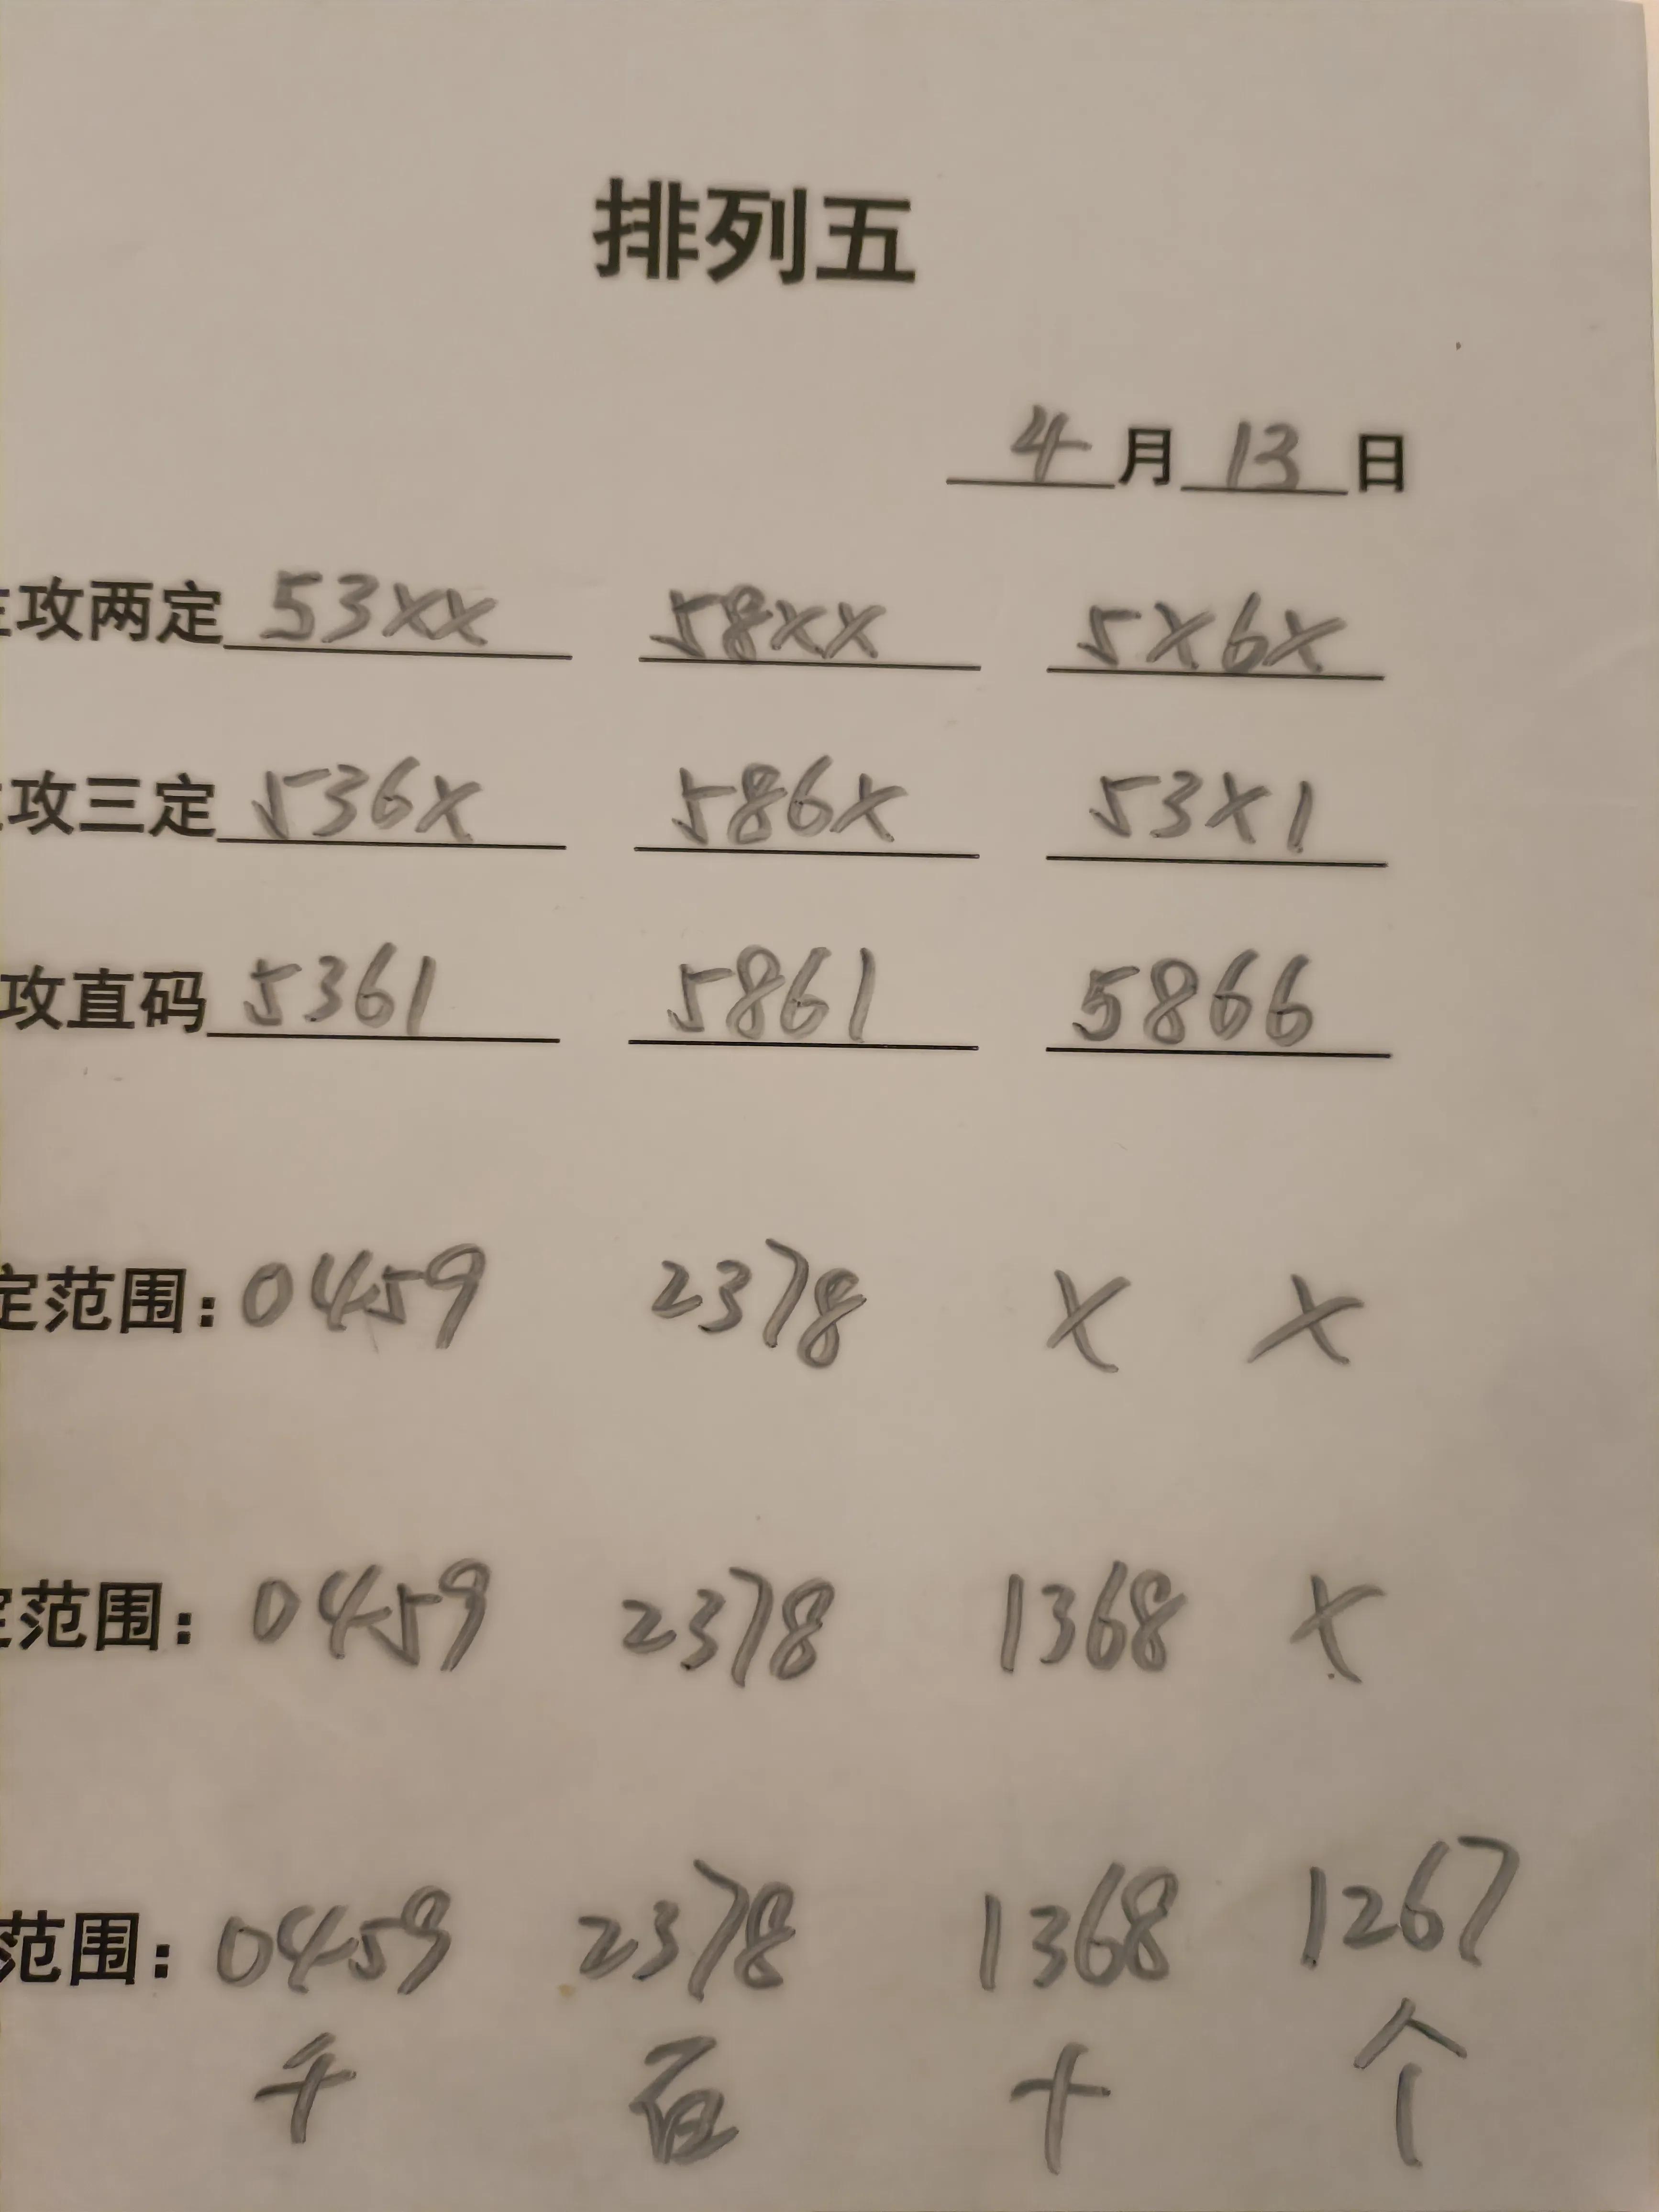 排列五
4月13日
攻两定 53XX 58XX 5X6X
攻三定 536X 586X 53X1
攻直码 5361 5861 5866
定范围：0459 2378 X X
范围：0459 2378 1368 X
范围：0459 2378 1368 1267
千 百 十 个